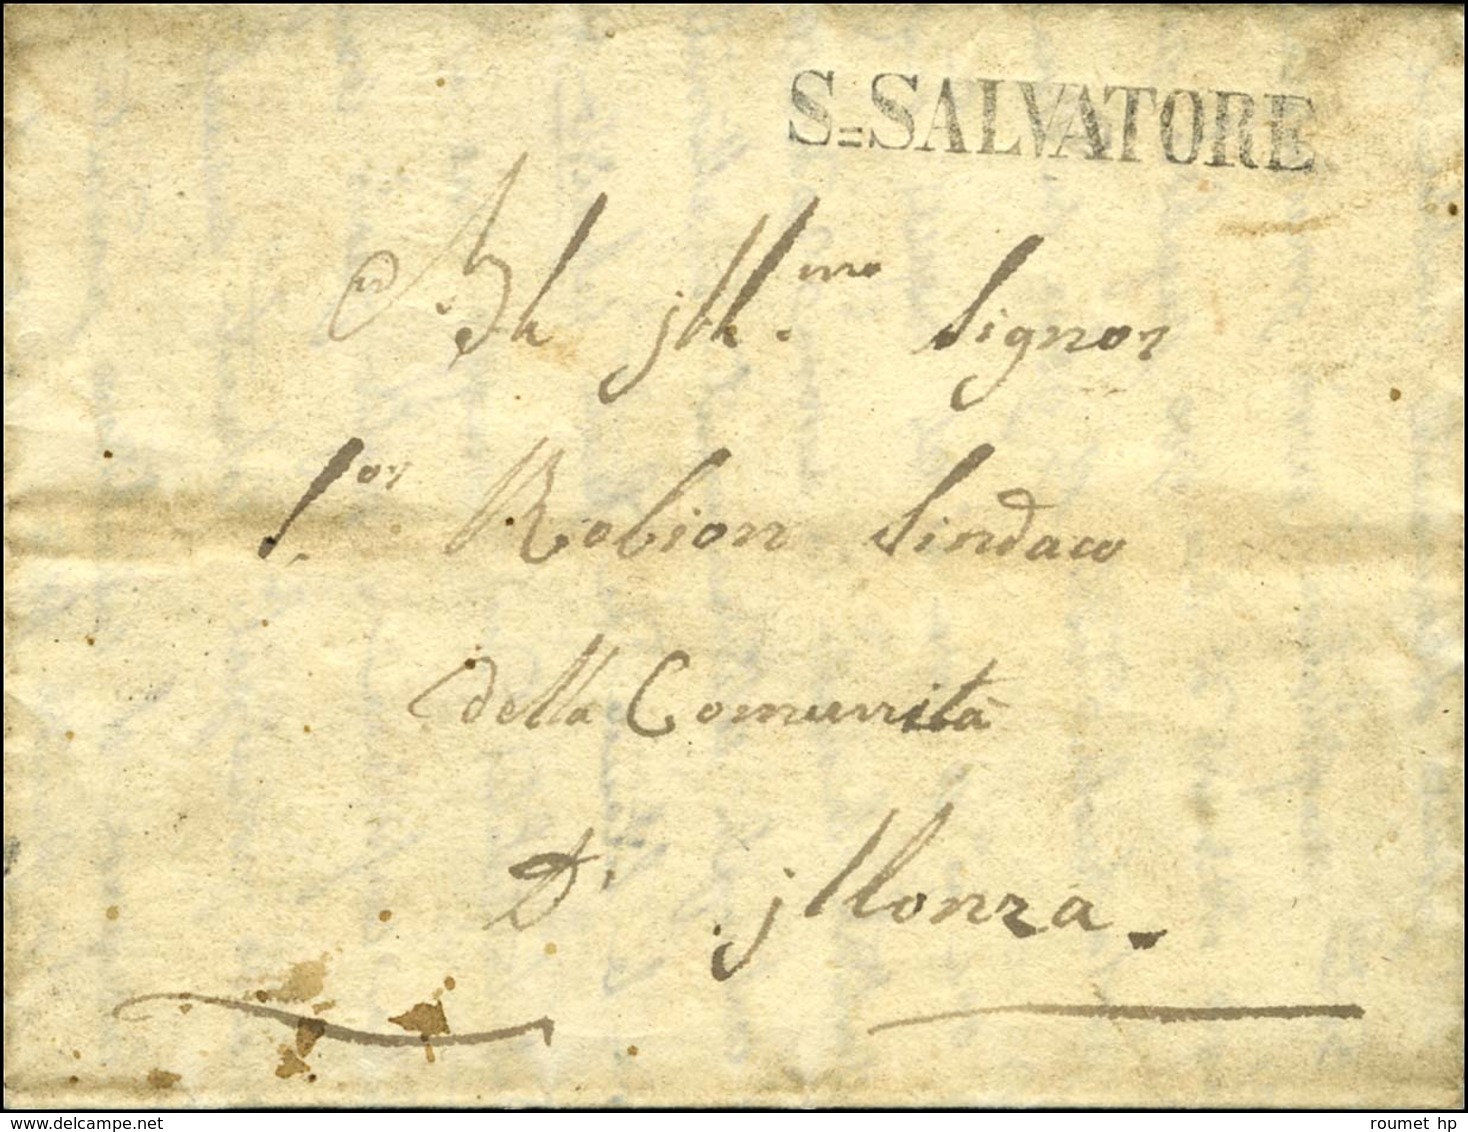 S=SALVATORE
All' Ill.mo Signor
S.or Robion Sindaco
della Comunità
Di Monza.
roumet hp